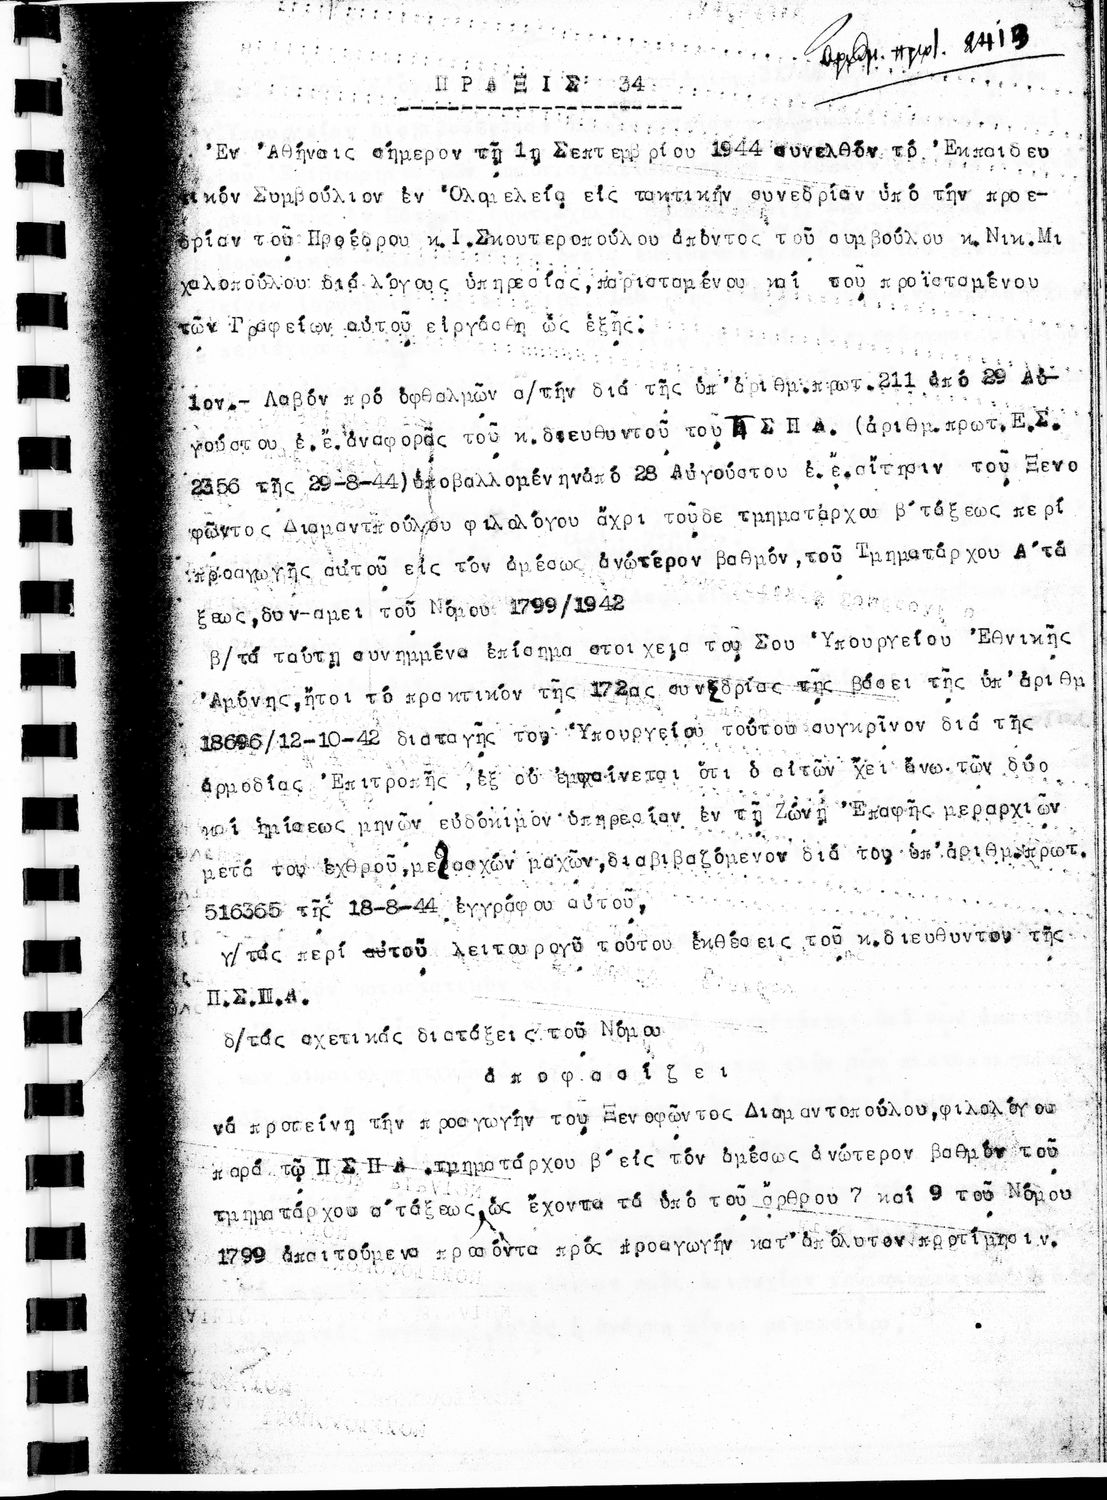 ἀριθμ. πρωτ. 2413
ΠΡΑΞΙΣ 34
Ἐν Ἀθήναις σήμερον τῇ 1ῃ Σεπτεμβρίου 1944 συνελθόν τό Ἐκπαιδευ
τικόν Συμβούλιον ἐν Ὁλομελείᾳ εἰς τακτικήν συνεδρίαν ὑπό τήν προε-
δρίαν τοῦ Προέδρου κ.Ι.Σκουτεροπούλου ἀπόντος τοῦ συμβούλου κ.Νικ.Μι
χαλοπούλου διά λόγους ὑπηρεσίας,παρισταμένου καί τοῦ προϊσταμένου
τῶν Γραφείων αὐτοῦ εἰργάσθη ὡς ἑξῆς:
1ον.- Λαβόν πρό ὀφθαλμῶν α/τήν διά τῆς ὑπ'ἀριθμ.πρωτ.211 ἀπό 29 Αὐ-
γούστου ἐ.ἔ.ἀναφορᾶς τοῦ κ.διευθυντοῦ τοῦ Π Σ Π Α. (ἀριθμ.πρωτ.Ε.Σ.
2356 τῆς 29-8-44)ὑποβαλλομένηνἀπό 28 Αὐγούστου ἐ.ἔ.αἴτησιν τοῦ Ξενο
φῶντος Διαμαντπούλου φιλολόγου ἄχρι τοῦδε τμηματάρχου β΄τάξεως περί
προαγωγῆς αὐτοῦ εἰς τόν ἀμέσως ἀνώτερον βαθμόν,τοῦ Τμηματάρχου Α΄τά
ξεως,δυν-αμει τοῦ Νόμου 1799/1942
β/τά ταύτῃ συνημμένα ἐπίσημα στοιχεῖα τοῦ Σου Ὑπουργείου Ἐθνικῆς
Ἀμύνης,ἤτοι τό πρακτικόν τῆς 172ας συνεδρίας τῆς βάσει τῆς ὑπ'ἀριθμ
18696/12-10-42 διαταγῆς τοῦ Ὑπουργείου τούτου συγκρῖνον διά τῆς
ἁρμοδίας Ἐπιτροπῆς ,ἐξ οὗ ἐμφαίνεται ὅτι ὁ αἰτῶν ἔχει ἄνω τῶν δύο
καί ἡμίσεως μηνῶν εὐδόκιμον ὑπηρεσίαν ἐν τῇ Ζώνῃ Ἐπαφῆς μεραρχιῶν
μετά τοῦ ἐχθροῦ,μετασχών μαχῶν,διαβιβαζόμενον διά τοῦ ὑπ'ἀριθμ.πρωτ.
516365 τῆς 18-8-44 ἐγγράφου αὐτοῦ,
γ/τάς περί αὐτοῦ λειτουργοῦ τούτου ἐκθέσεις τοῦ κ.διευθυντοῦ τῆς
Π.Σ.Π.Α.
δ/τάς σχετικάς διατάξεις τοῦ Νόμου
ἀποφασίζει
νά προτείνῃ τήν προαγωγήν τοῦ Ξενοφῶντος Διαμαντοπούλου,φιλολόγου
παρά τῷ Π Σ Π Α .τμηματάρχου β΄εἰς τόν ἀμέσως ἀνώτερον βαθμόν τοῦ
τμηματάρχου α΄τάξεως,ὡς ἔχοντα τά ὑπό τοῦ ἄρθρου 7 καί 9 τοῦ Νόμου
1799 ἀπαιτούμενα προσόντα πρός προαγωγήν κατ'ἀπόλυτον προτίμησιν.